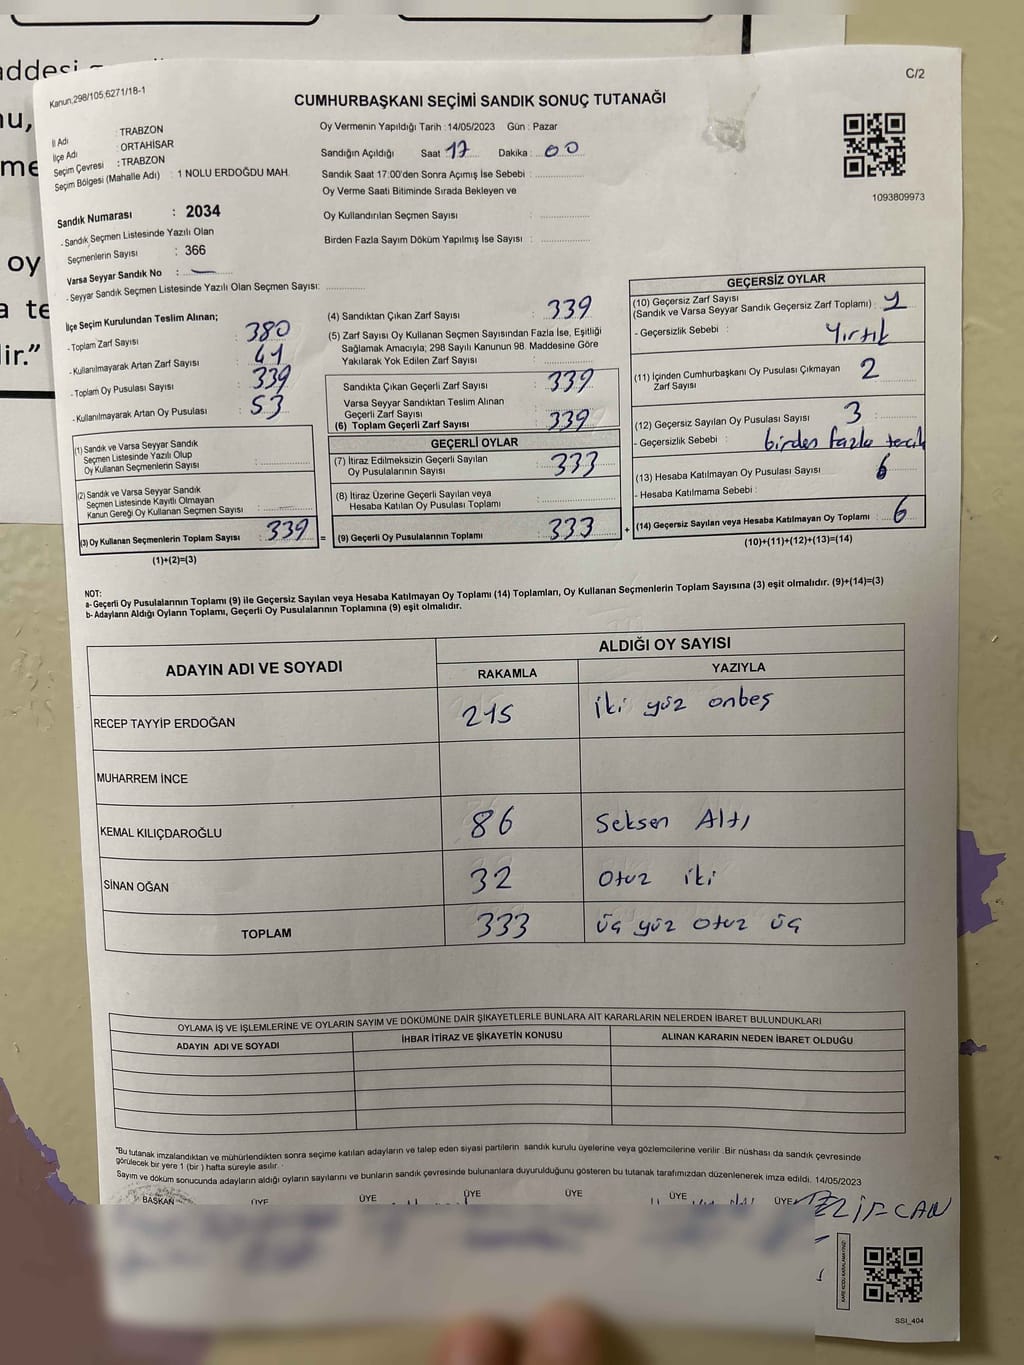 addesi
nu,
me
oy
a te
lir."
C/2
Kanun,298/105;6271/18-1
CUMHURBAŞKANI SEÇİMİ SANDIK SONUÇ TUTANAĞI
İl Adı : TRABZON
İlçe Adı : ORTAHİSAR
Seçim Çevresi : TRABZON
Seçim Bölgesi (Mahalle Adı) : 1 NOLU ERDOĞDU MAH.
Sandık Numarası : 2034
- Sandık Seçmen Listesinde Yazılı Olan
Seçmenlerin Sayısı : 366
Varsa Seyyar Sandık No : —
- Seyyar Sandık Seçmen Listesinde Yazılı Olan Seçmen Sayısı:
Oy Vermenin Yapıldığı Tarih : 14/05/2023 Gün : Pazar
Sandığın Açıldığı Saat 17 Dakika : 00
Sandık Saat 17:00'den Sonra Açımış İse Sebebi :
Oy Verme Saati Bitiminde Sırada Bekleyen ve
Oy Kullandırılan Seçmen Sayısı :
Birden Fazla Sayım Döküm Yapılmış İse Sayısı :
1093809973
İlçe Seçim Kurulundan Teslim Alınan;
- Toplam Zarf Sayısı : 380
- Kullanılmayarak Artan Zarf Sayısı : 41
- Toplam Oy Pusulası Sayısı : 339
- Kullanılmayarak Artan Oy Pusulası : 53
(1) Sandık ve Varsa Seyyar Sandık
Seçmen Listesinde Yazılı Olup
Oy Kullanan Seçmenlerin Sayısı :
(2) Sandık ve Varsa Seyyar Sandık
Seçmen Listesinde Kayıtlı Olmayan
Kanun Gereği Oy Kullanan Seçmen Sayısı :
(3) Oy Kullanan Seçmenlerin Toplam Sayısı : 339 =
(1)+(2)=(3)
(4) Sandıktan Çıkan Zarf Sayısı : 339
(5) Zarf Sayısı Oy Kullanan Seçmen Sayısından Fazla İse, Eşitliği
Sağlamak Amacıyla; 298 Sayılı Kanunun 98. Maddesine Göre
Yakılarak Yok Edilen Zarf Sayısı :
Sandıkta Çıkan Geçerli Zarf Sayısı : 339
Varsa Seyyar Sandıktan Teslim Alınan
Geçerli Zarf Sayısı :
(6) Toplam Geçerli Zarf Sayısı : 339
GEÇERLİ OYLAR
(7) İtiraz Edilmeksizin Geçerli Sayılan
Oy Pusulalarının Sayısı : 333
(8) İtiraz Üzerine Geçerli Sayılan veya
Hesaba Katılan Oy Pusulası Toplamı :
(9) Geçerli Oy Pusulalarının Toplamı : 333 +
GEÇERSİZ OYLAR
(10) Geçersiz Zarf Sayısı
(Sandık ve Varsa Seyyar Sandık Geçersiz Zarf Toplamı) : 1
- Geçersizlik Sebebi : Yırtık
(11) İçinden Cumhurbaşkanı Oy Pusulası Çıkmayan
Zarf Sayısı : 2
(12) Geçersiz Sayılan Oy Pusulası Sayısı : 3
- Geçersizlik Sebebi : birden fazla tercih
(13) Hesaba Katılmayan Oy Pusulası Sayısı : 6
- Hesaba Katılmama Sebebi :
(14) Geçersiz Sayılan veya Hesaba Katılmayan Oy Toplamı : 6
(10)+(11)+(12)+(13)=(14)
NOT:
a- Geçerli Oy Pusulalarının Toplamı (9) ile Geçersiz Sayılan veya Hesaba Katılmayan Oy Toplamı (14) Toplamları, Oy Kullanan Seçmenlerin Toplam Sayısına (3) eşit olmalıdır. (9)+(14)=(3)
b- Adayların Aldığı Oyların Toplamı, Geçerli Oy Pusulalarının Toplamına (9) eşit olmalıdır.
ADAYIN ADI VE SOYADI
ALDIĞI OY SAYISI
RAKAMLA YAZIYLA
RECEP TAYYİP ERDOĞAN 215 iki yüz onbeş
MUHARREM İNCE
KEMAL KILIÇDAROĞLU 86 Seksen Altı
SİNAN OĞAN 32 Otuz iki
TOPLAM 333 üç yüz otuz üç
OYLAMA İŞ VE İŞLEMLERİNE VE OYLARIN SAYIM VE DÖKÜMÜNE DAİR ŞİKAYETLERLE BUNLARA AİT KARARLARIN NELERDEN İBARET BULUNDUKLARI
ADAYIN ADI VE SOYADI İHBAR İTİRAZ VE ŞİKAYETİN KONUSU ALINAN KARARIN NEDEN İBARET OLDUĞU
*Bu tutanak imzalandıktan ve mühürlendikten sonra seçime katılan adayların ve talep eden siyasi partilerin sandık kurulu üyelerine veya gözlemcilerine verilir .Bir nüshası da sandık çevresinde
görülecek bir yere 1 (bir ) hafta süreyle asılır.
Sayım ve döküm sonucunda adayların aldığı oyların sayılarını ve bunların sandık çevresinde bulunanlara duyurulduğunu gösteren bu tutanak tarafımızdan düzenlenerek imza edildi. 14/05/2023
BAŞKAN ÜYE ÜYE ÜYE ÜYE ÜYE ÜYE
ELİF CAN
SSİ_404